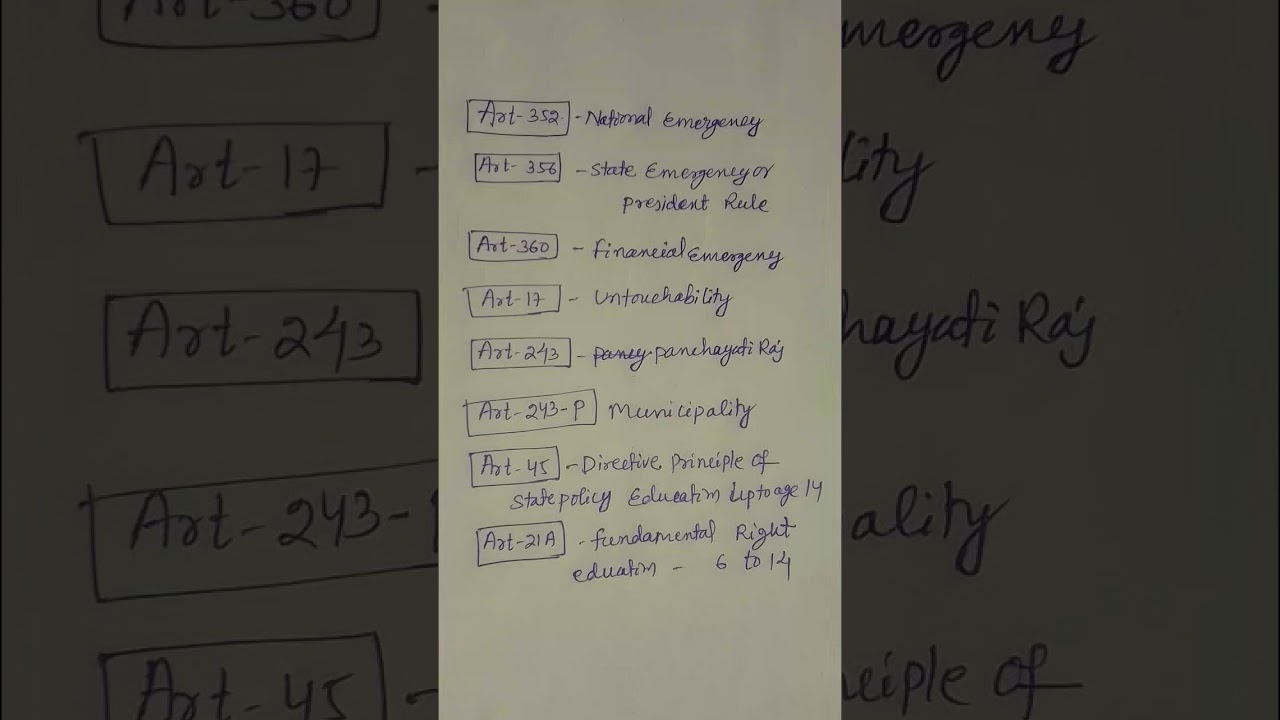 Art-352 - National Emergency
Art-356 - State Emergency or
President Rule
Art-360 - financial Emergency
Art-17 - Untouchability
Art-243 - pancy panchayati Raj
Art-243-P Municipality
Art-45 - Directive, Principle of
State policy Education Upto age 14
Art-21A - fundamental Right
eduatim - 6 to 14